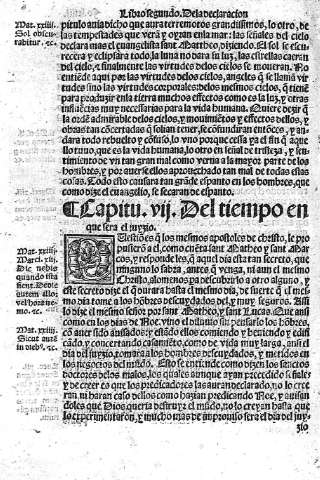 Libro segundo. De la declaracion
pitulo auia dicho que aura terremotos grandissimos, lo otro, de
las tempestades que verá y oyran en la mar: las señales del cielo
declara mas el euangelista sant Mattheo, diziendo. El sol se escu-
recera y eclipsará todo, la luna no dara su luz, las estrellas caerán
del cielo, y finalmente las virtudes de los cielos se moueran. No
entiēde aqui por las virtudes de los cielos, angeles q̄ se llamā vir-
tudes sino las virtudes corporales: de los mesmos cielos, q̄ tienē
para produzir en la tierra muchos effectos como es la luz, y otras
influēcias muy necessarias para la vida humana. Quiere dezir q̄
la ordē admirable de los cielos, y mouimiētos y effectos dellos, y
obras tan cōcertadas q̄ solian tener, se cōfundiran entōces, y an-
dara todo rebuelto y cōfuso, lo vno porque cessa ya el fin q̄ aque
llo tuuo, que es la vida humana, lo otro en señal de tristeza, y sen-
timiento de vn tan gran mal como verna a la mayor parte de los
hombres, y por auerse ellos aprouechado tan mal de todas estas
cosas. Todo esto causara tan grāde espanto en los hombres, que
como dize el euāgelio, se secaran de espanto.
Mat. xxiiij.
Sol obscu-
rabitur. &c.
¶ Capitu. vij. Del tiempo en
que sera el juyzio.
Qvestiōes q̄ los mesmos apostoles de christo, le pro
pusierō a el, como cuēta sant Matheo y sant Mar
cos, y responde les, q̄ aquel dia esta tan secreto, que
ninguno lo sabra, antes q̄ venga, ni aun el mesmo
Christo, alomenos pa descubrirlo a otro alguno, y
este secreto dize el q̄ durara hasta el mesmo dia, de suerte q̄ el mes-
mo dia tome a los hōbres descuydados del, y muy seguros. Assi
lo dize el mesmo señor por sant Matheo, y sant Lucas. Que assi
como en los dias de Noe, vino el diluuio sin pensarlo los hōbres,
cō auer sido auisados: y estādo ellos comiendo y beuiendo y edifi
cādo, y concertando casamiēto, como de vida muy larga, assi el
dia del juyzio, tomara a los hombres descuydados, y metidos en
los negocios del mūdo. Esto se entiende como dizen los sanctos
doctores de los malos, los quales aunque ayan precedido señales
y de creer es que los predicadores las auran declarado, no lo cree
ran, ni haran caso dellos como hazian predicando Noe, y auisan
doles que Dios queria destruyr el mūdo, no lo creyan hasta que
lo experimentaron, y mucho mas de improuiso sera el dia del juy
Mat. xxiiij.
Marci. xiij.
De die au
tem illo,
vel hora ne
mo. &c.
Mat. xxiiij.
Sicut aut̄
in dieb⁹. &c.
zio